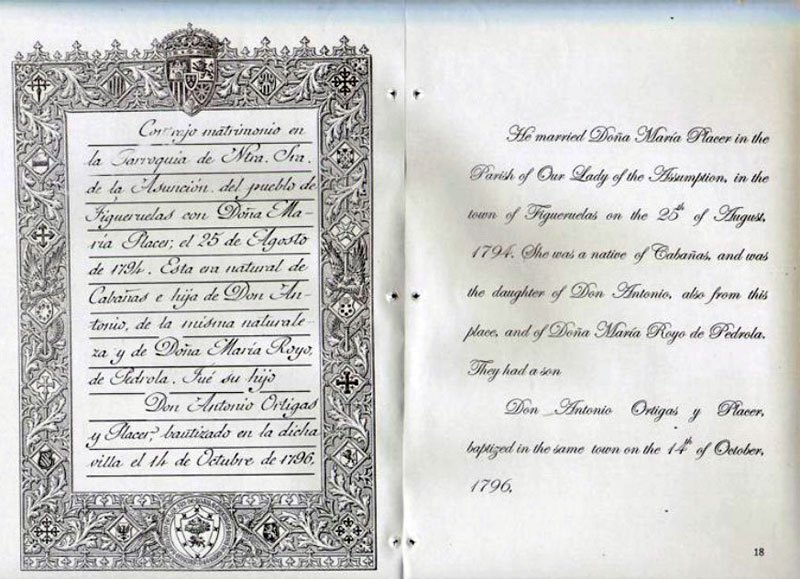 Contrajo matrimonio en
la Parroquia de Ntra. Sra.
de la Asunción, del pueblo de
Figueruelas con Doña Ma-
ría Placer, el 25 de Agosto
de 1794. Esta era natural de
Cabañas e hija de Don An-
tonio, de la misma naturale-
za y de Doña María Royo,
de Pedrola. Fué su hijo
Don Antonio Ortigas
y Placer, bautizado en la dicha
villa el 14 de Octubre de 1796.
He married Doña María Placer in the
Parish of Our Lady of the Assumption, in the
town of Figueruelas on the 25th of August,
1794. She was a native of Cabañas, and was
the daughter of Don Antonio, also from this
place, and of Doña María Royo de Pedrola.
They had a son
Don Antonio Ortigas y Placer,
baptized in the same town on the 14th of October,
1796.
18